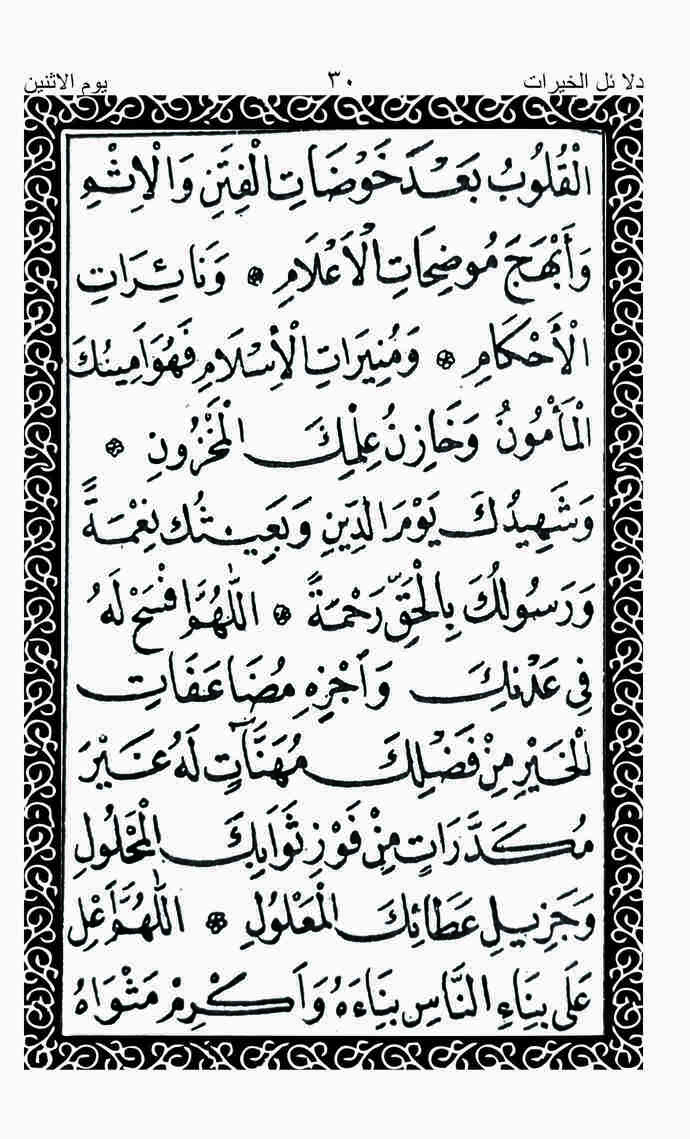 دلائل الخيرات ٣٠ يوم الاثنين
الْقُلُوبُ بَعْدَ خَوْضَاتِ الْفِتَنِ وَالْاِثْمِ
وَأَبْهَجَ مُوضِحَاتِ الْاَعْلَامِ ۞ وَنَائِرَاتِ
الْأَحْكَامِ ۞ وَمُنِيرَاتِ الْأِسْلَامِ فَهُوَ اَمِينُكَ
الْمَأْمُونُ وَخَازِنُ عِلْمِكَ الْمَخْزُونِ ۞
وَشَهِيدُكَ يَوْمَ الدِّينِ وَبَعِيثُكَ نِعْمَةً
وَرَسُولُكَ بِالْحَقِّ رَحْمَةً ۞ اَللّٰهُمَّ افْسَحْ لَهُ
فِى عَدْنِكَ وَاجْزِهِ مُضَاعَفَاتِ
الْخَيْرِ مِنْ فَضْلِكَ مُهَنَّاٰتٍ لَهُ غَيْرَ
مُكَدَّرَاتٍ مِنْ فَوْزِ ثَوَابِكَ الْمَحْلُولِ
وَجَزِيلِ عَطَائِكَ الْمَعْلُولِ ۞ اَللّٰهُمَّ أَعْلِ
عَلَى بِنَاءِ النَّاسِ بِنَاءَهُ وَاَكْرِمْ مَثْوَاهُ